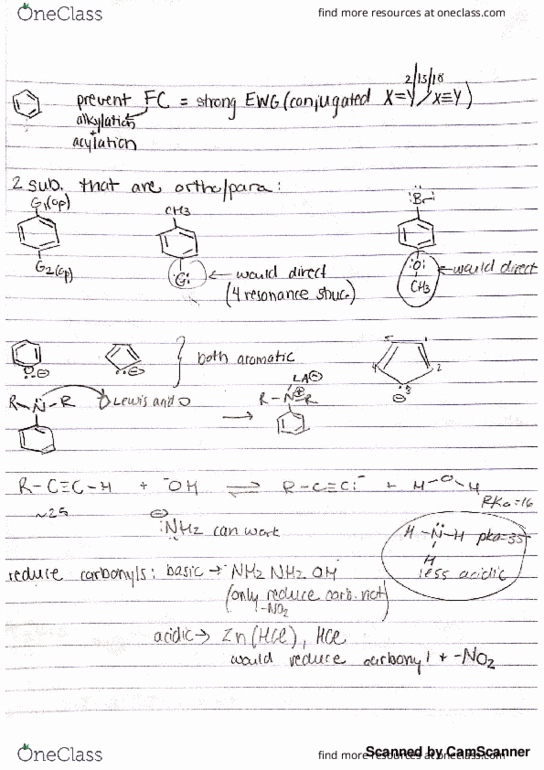 OneClass
find more resources at oneclass.com
2/15/18
prevent FC = strong EWG (conjugated X=Y, X≡Y)
alkylation
+
acylation
2 sub. that are ortho/para:
G1(op)
CH3
:Br:
G2(op)
Cl:
← would direct
(4 resonance struc.)
:O:
CH3
← would direct
both aromatic
5
1
4
2
3
⊖
R-N-R
Lewis acid
→
LA⊖
R-N-R
⊕
R-C≡C-H + ⁻OH ⇌ R-C≡C:⁻ + H-O-H
~25
PKa=16
⊖:NH2 can work
H-N-H pka=35
H
less acidic
reduce carbonyls: basic → NH2 NH2 OH
(only reduce carb. not)
-NO2
acidic → Zn(HCl), HCl
would reduce carbonyl + -NO2
Scanned by CamScanner
OneClass
find more resources at oneclass.com